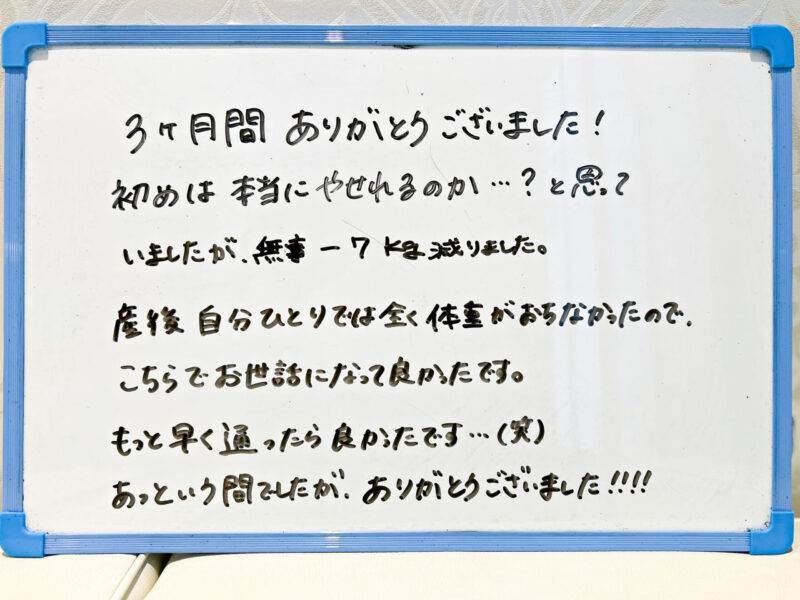 3ヶ月間 ありがとうございました！
初めは 本当に やせれるのか…？と思って
いましたが、無事 −7kg減りました。
産後 自分ひとりでは全く体重がおちなかったので、
こちらでお世話になって良かったです。
もっと早く通ったら良かったです…(笑)
あっという間でしたが、ありがとうございました!!!!